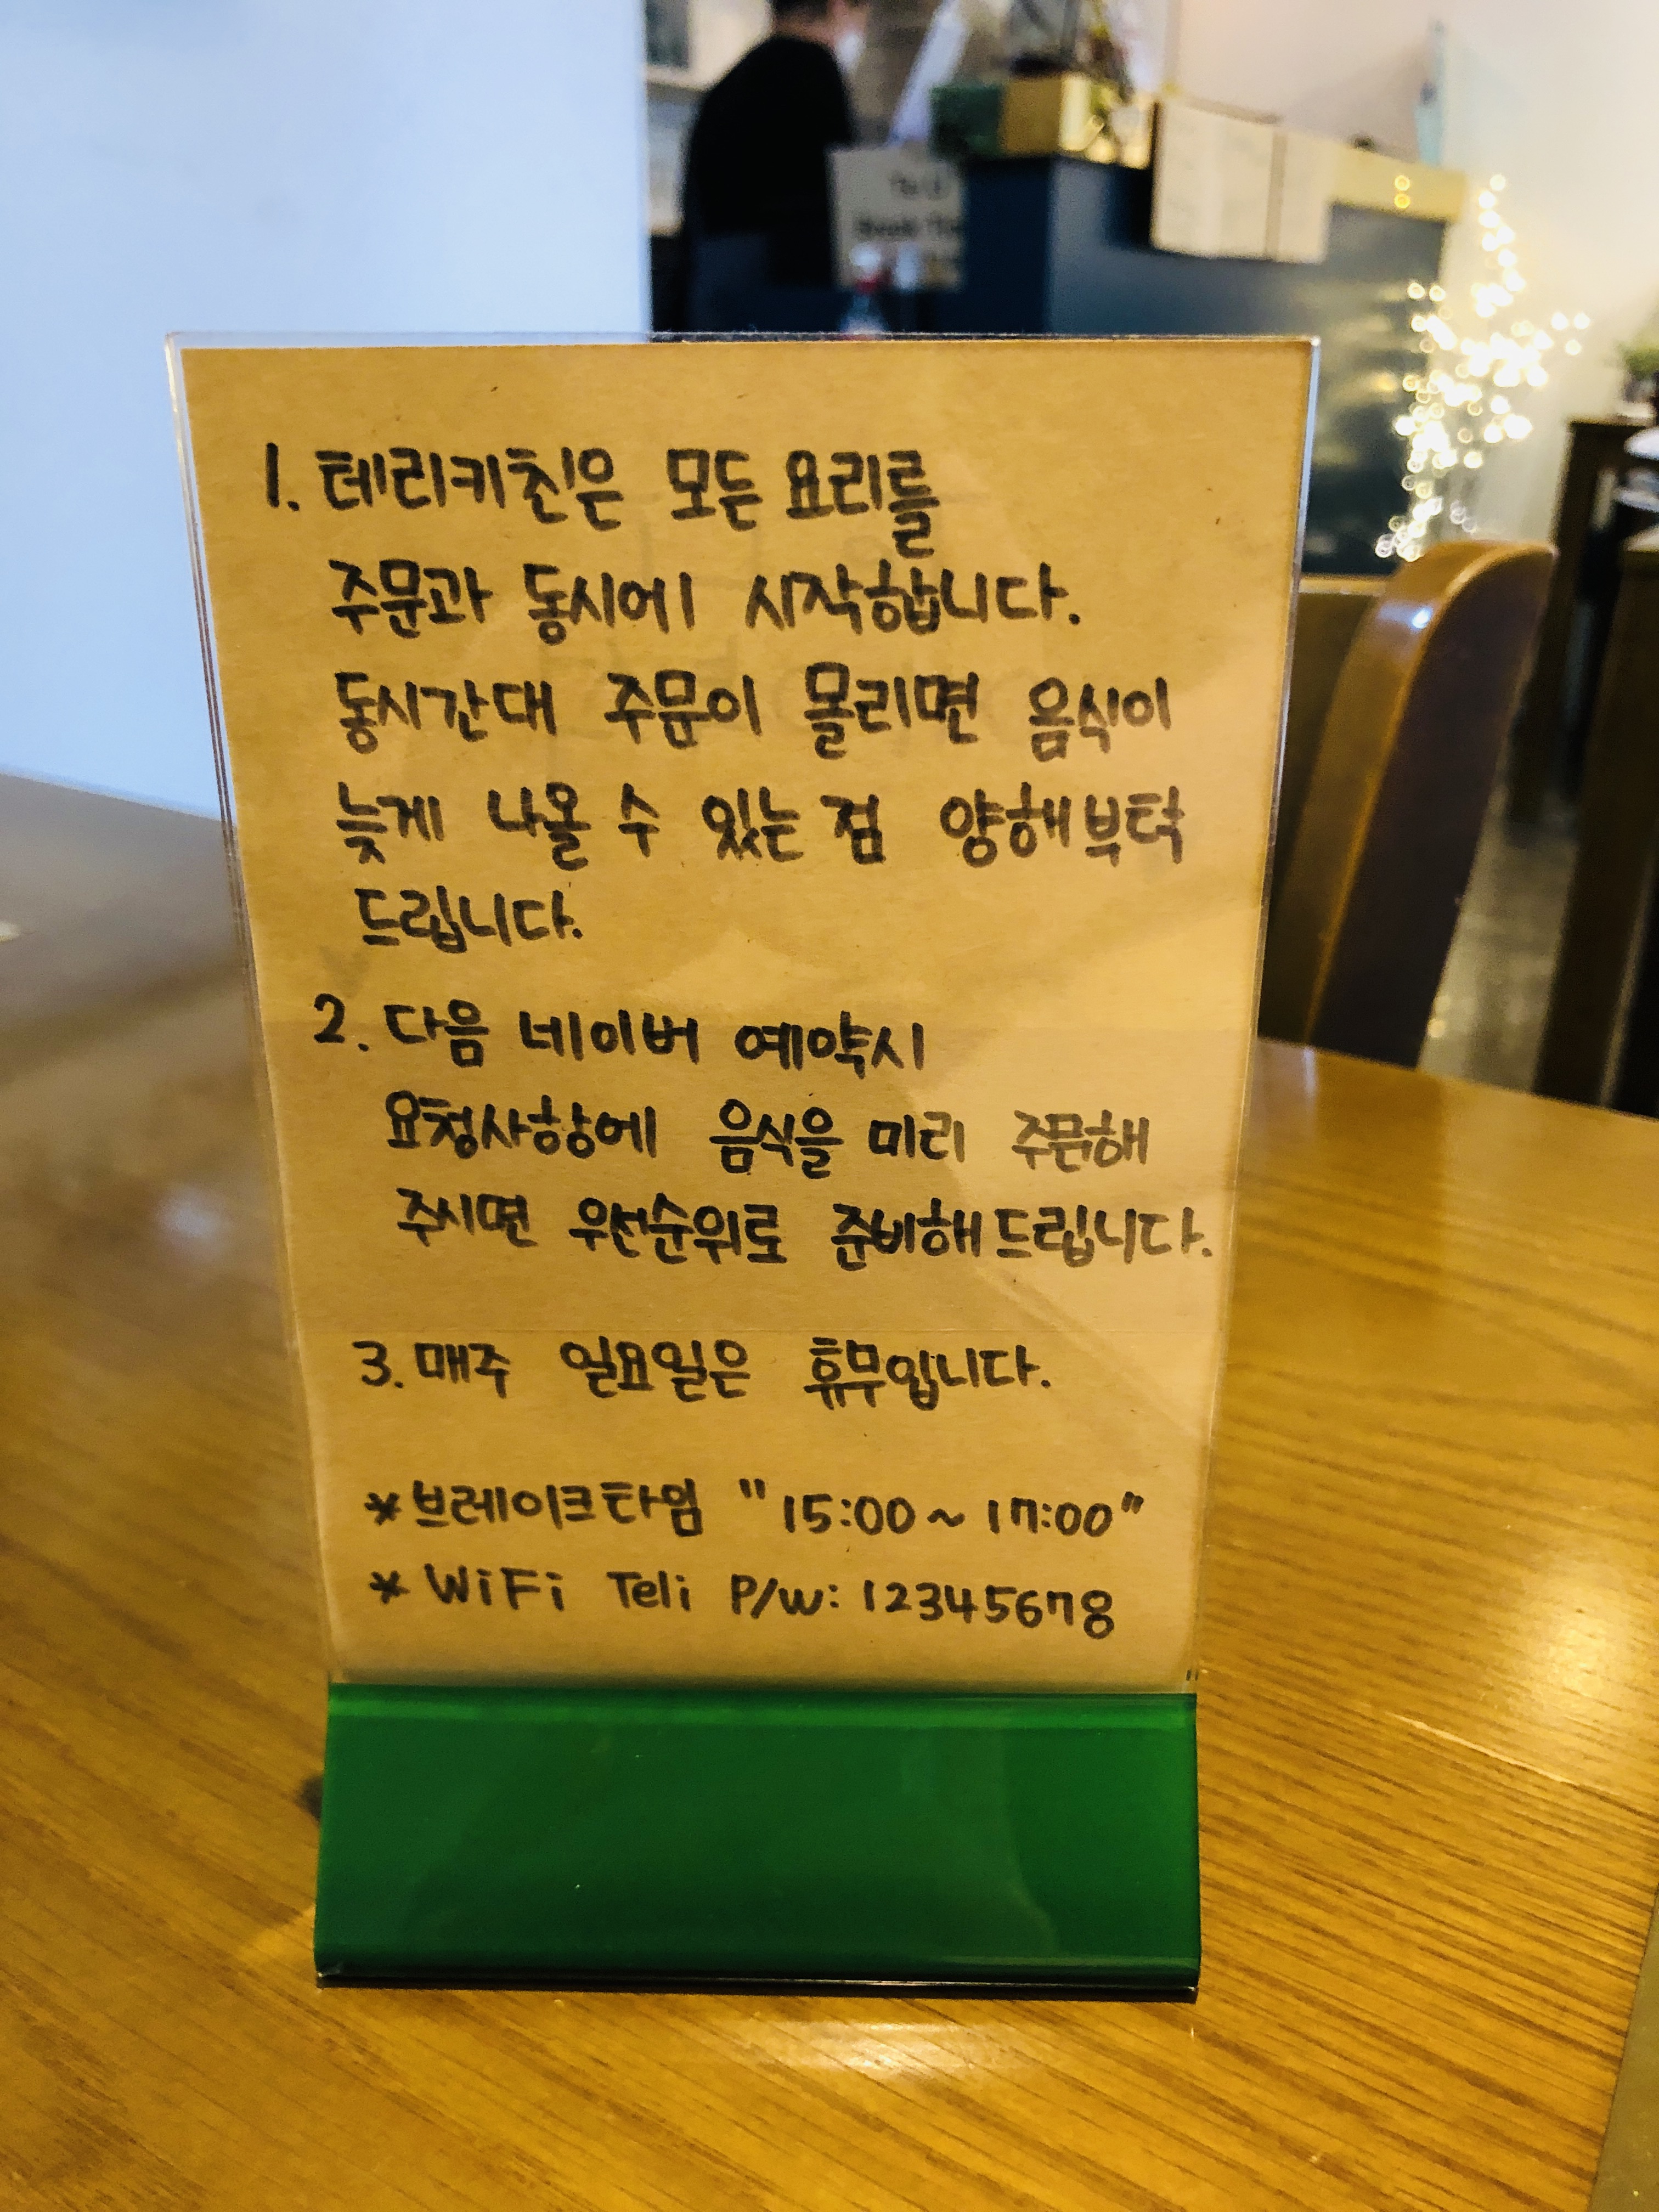 1. 테리키친은 모든 요리를
주문과 동시에 시작합니다.
동시간대 주문이 몰리면 음식이
늦게 나올 수 있는 점 양해부탁
드립니다.
2. 다음 네이버 예약시
요청사항에 음식을 미리 주문해
주시면 우선순위로 준비해드립니다.
3. 매주 일요일은 휴무입니다.
* 브레이크타임 "15:00~17:00"
* WiFi Teli P/w: 12345678